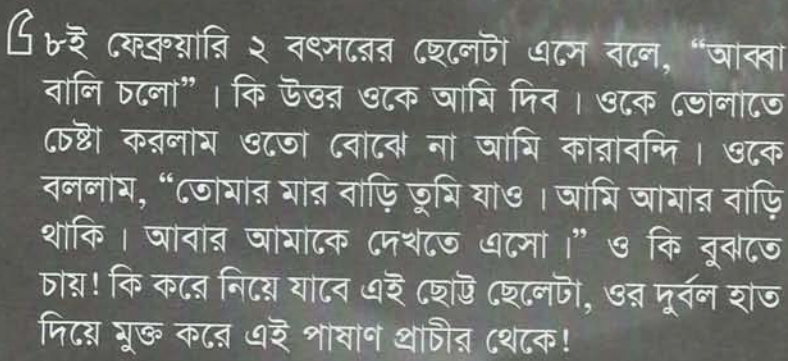 “ ৮ই ফেব্রুয়ারি ২ বৎসরের ছেলেটা এসে বলে, “আব্বা
বালি চলো” । কি উত্তর ওকে আমি দিব । ওকে ভোলাতে
চেষ্টা করলাম ওতো বোঝে না আমি কারাবন্দি । ওকে
বললাম, “তোমার মার বাড়ি তুমি যাও । আমি আমার বাড়ি
থাকি । আবার আমাকে দেখতে এসো ।” ও কি বুঝতে
চায়! কি করে নিয়ে যাবে এই ছোট্ট ছেলেটা, ওর দুর্বল হাত
দিয়ে মুক্ত করে এই পাষাণ প্রাচীর থেকে!